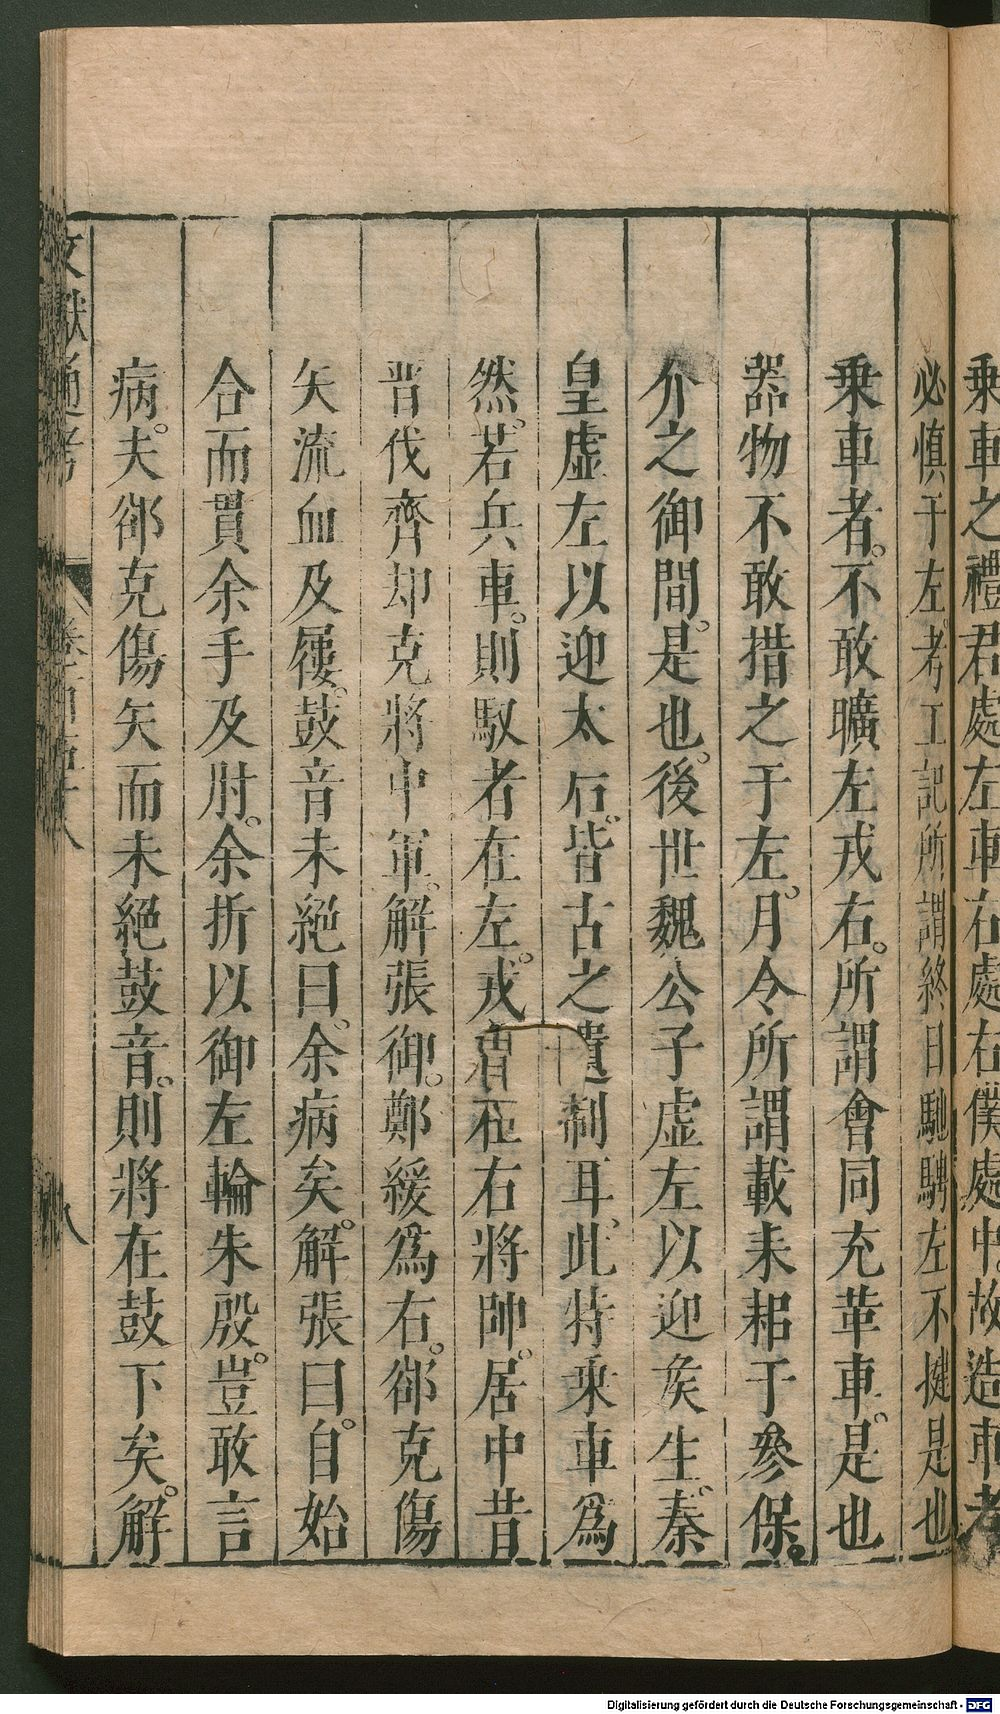 乗車之禮君處左車右處右僕處中故造車者
必慎于左考工記所謂終日馳騁左不揵是也
乗車者不敢曠左戎右所謂會同充革車是也
器物不敢措之于左月令所謂載耒耜于參保
介之御間是也後世魏公子虛左以迎矦生秦
皇虛左以迎太后皆古之遺制耳此特乘車爲
然若兵車則馭者在左戎右在右將帥居中昔
晋伐齊却克將中軍解張御鄭緩爲右郤克傷
矢流血及屨鼓音未絕曰余病矣解張曰自始
合而貫余手及肘余折以御左輪朱殷豈敢言
病夫郤克傷矢而未絕鼓音則將在鼓下矣解
文獻通考 八
Digitalisierung gefördert durch die Deutsche Forschungsgemeinschaft - DFG